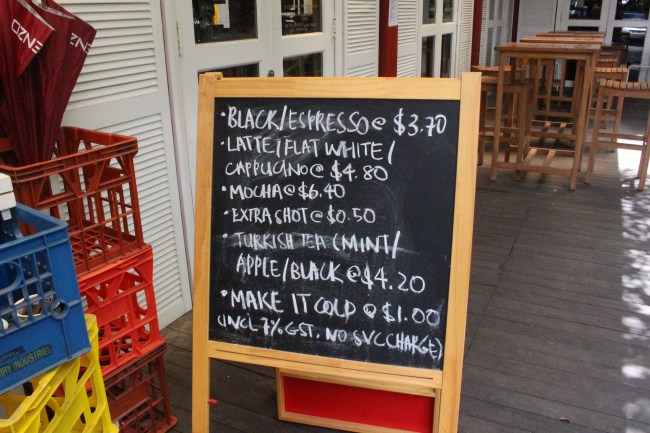 ENZO
OZ
• BLACK/ESPRESSO @ $3.70
• LATTE/FLAT WHITE/
CAPPUCINO @ $4.80
• MOCHA @ $6.40
• EXTRA SHOT @ $0.50
• TURKISH TEA (MINT/
APPLE/BLACK @ $4.20
• MAKE IT COLD @ $1.00
(INCL 7% GST, NO SVC CHARGE)
INDUSTRIES